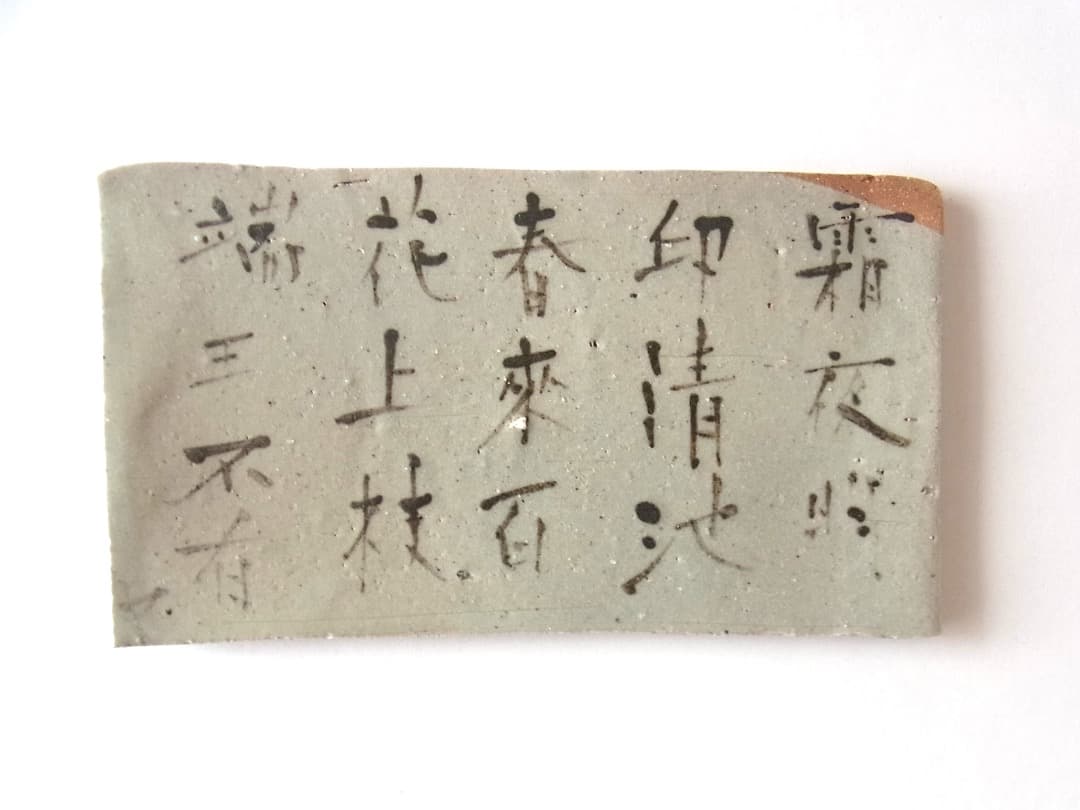 霜夜
印清池
春來百
花上枝
端三不有